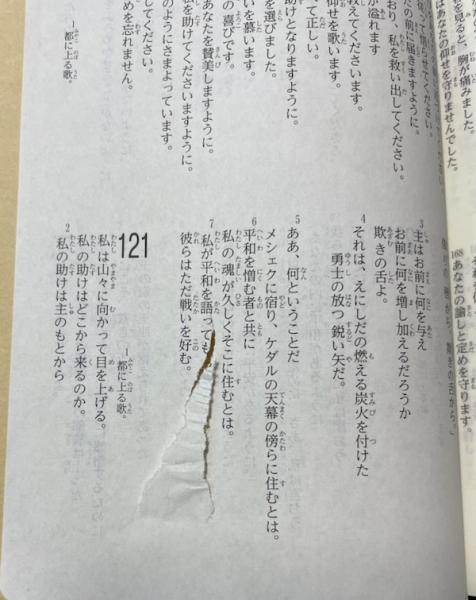 を見ると、胸が痛みました。
はあなたの仰せを守りませんでした。
168 あなたの諭しと定めを守ります。
せてください。
の前に届きますように。
おり、私を救い出してください。
が溢れます
仰せを歌います。
て正しい。
助けとなりますように。
を選びました。
いを慕います。
の喜びです。
あなたを賛美しますように。
私を助けてくださいますように。
のようにさまよっています。
してください。
めを忘れません。
都に上る歌。
3 主はお前に何を与え
お前に何を増し加えるだろうか
欺きの舌よ。
4 それは、えにしだの燃える炭火を付けた
勇士の放つ鋭い矢だ。
5 ああ、何ということだ
メシェクに宿り、ケダルの天幕の傍らに住むとは。
6 平和を憎む者と共に
私の魂が久しくそこに住むとは。
7 私が平和を語っても
彼らはただ戦いを好む。
121
都に上る歌。
私は山々に向かって目を上げる。
私の助けはどこから来るのか。
2 私の助けは主のもとから